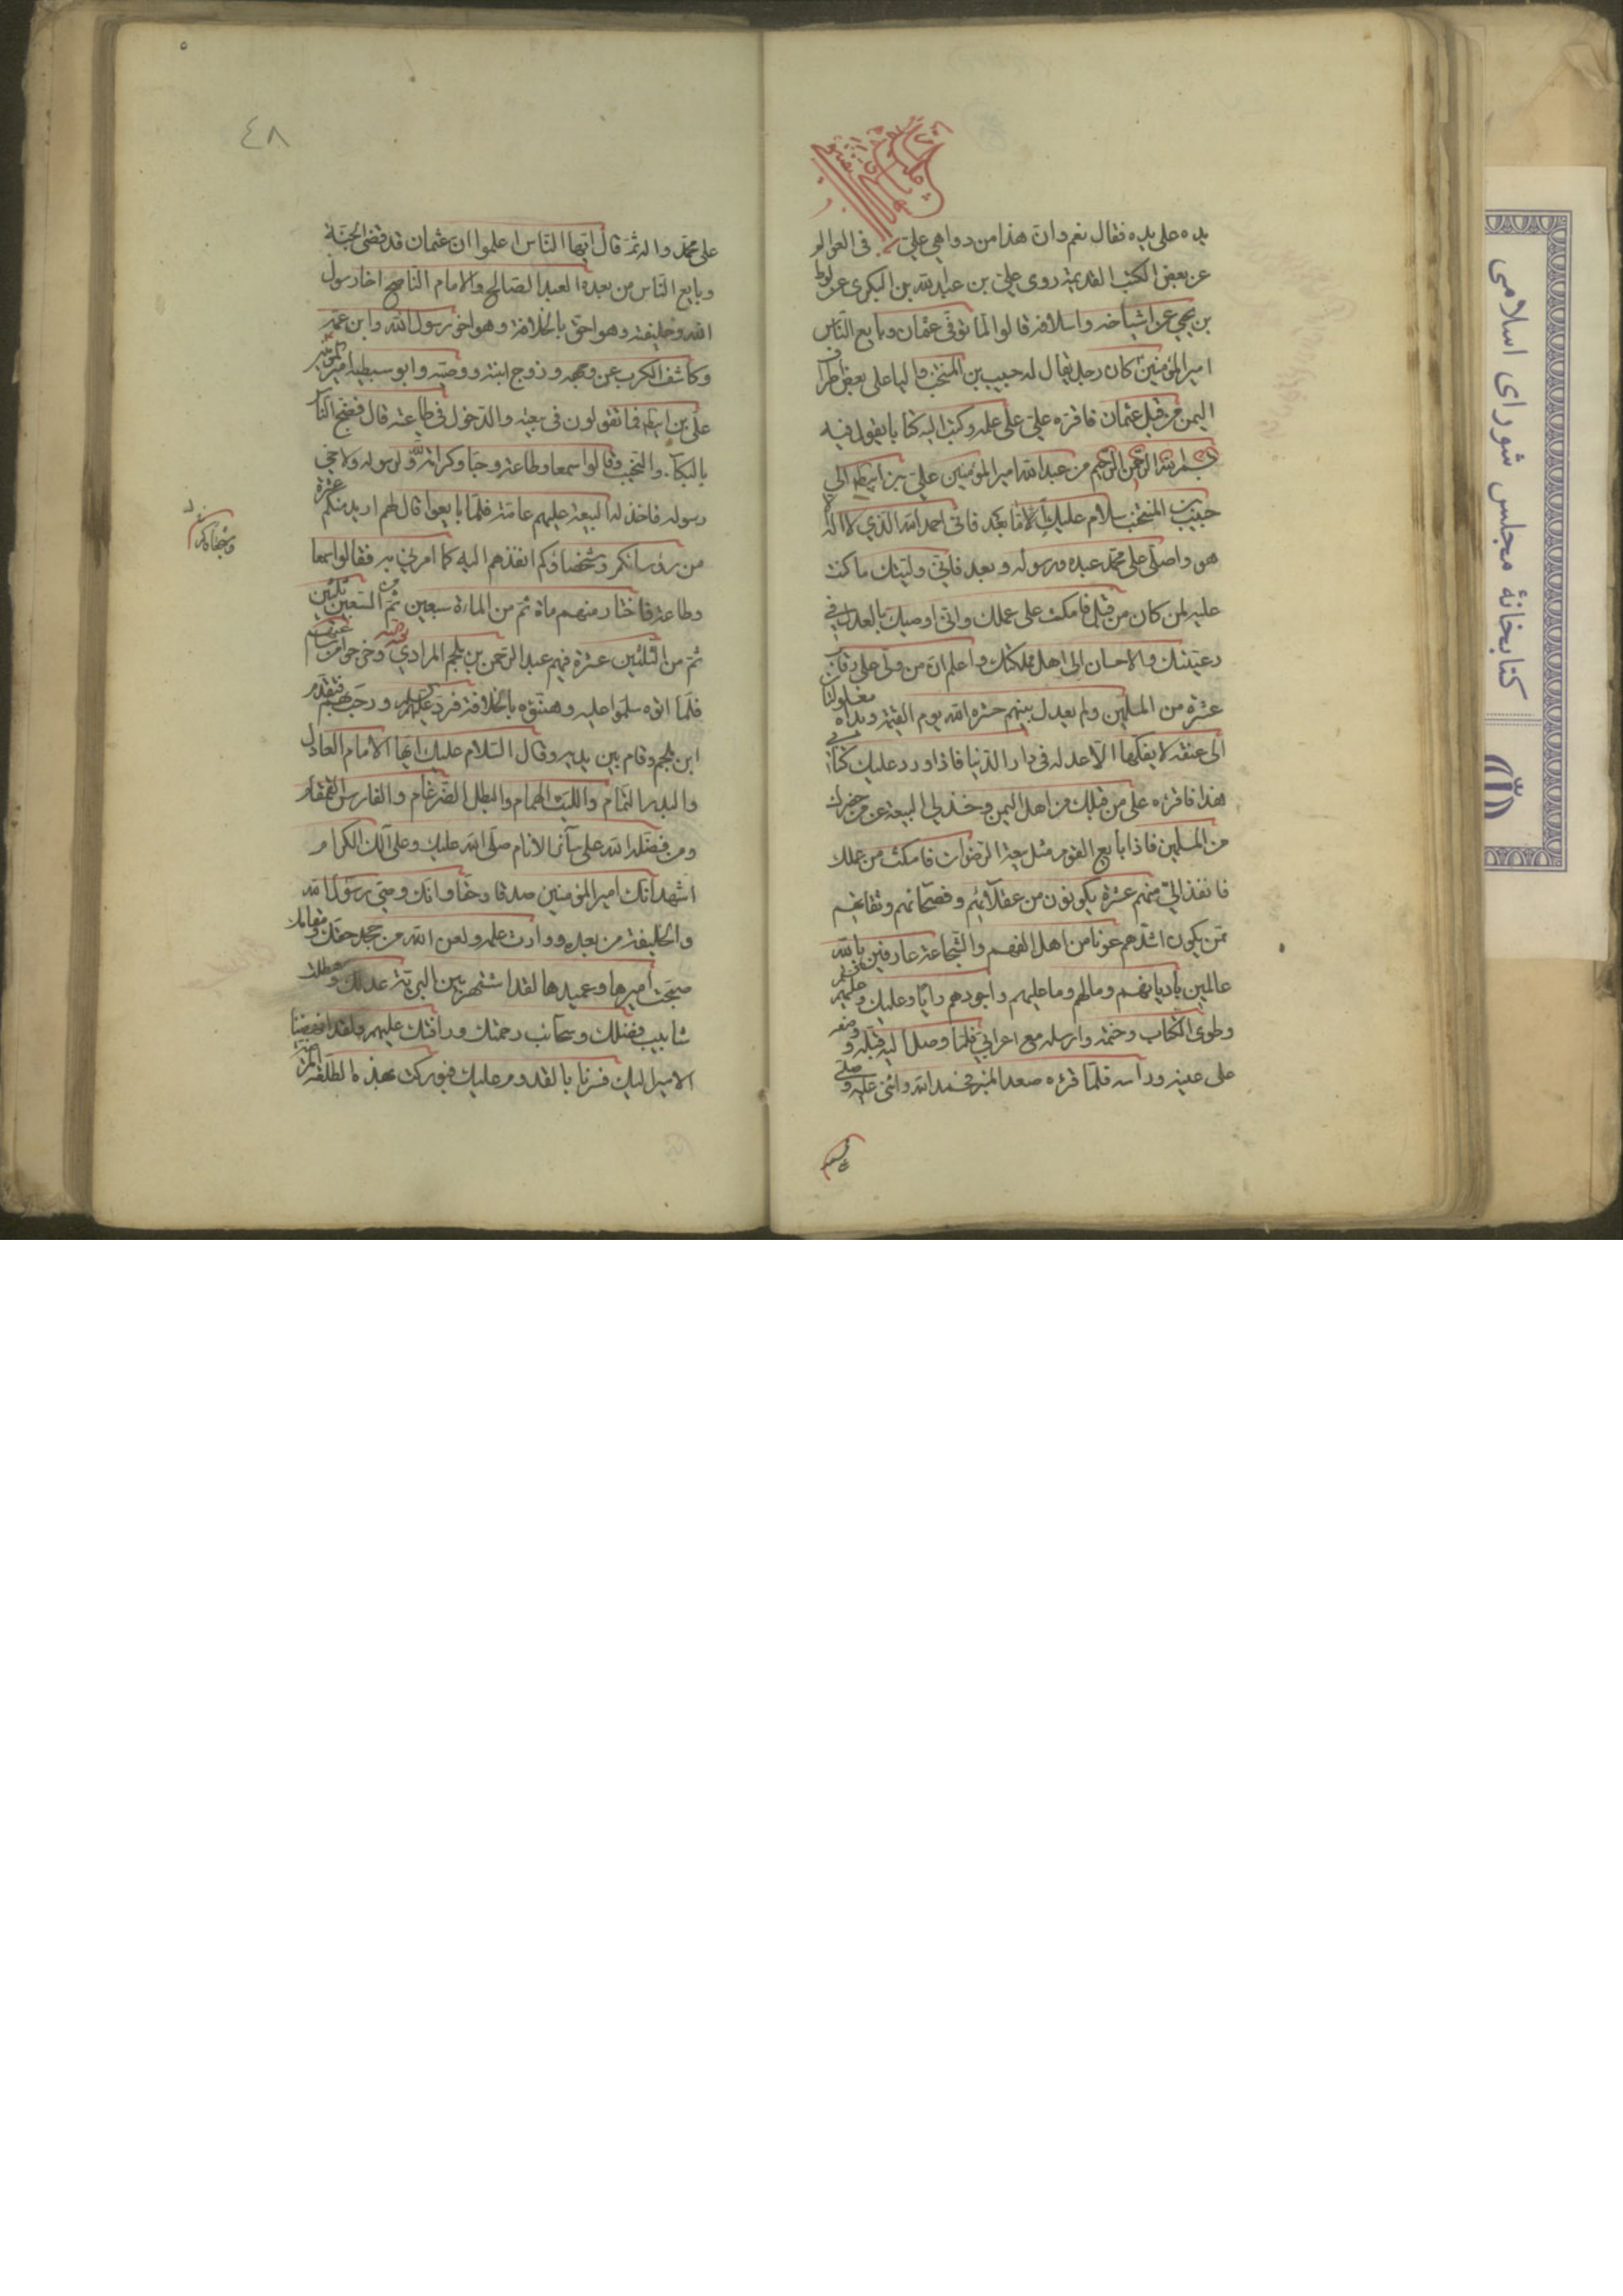 يده على يده فقال نعم وان هذا من دواهي علي في العوالم
عن بعض الكتب القديمة روى علي بن عبد الله بن البكري عن لوط
بن يحيى عن اشياخه واسلافه قالوا لما توفى عثمان وبايع الناس
امير المؤمنين كان رجل يقال له حبيب بن المنتجب واليا على بعض اطراف
اليمن من قبل عثمان فاقره علي على عمله وكتب اليه كتابا يقول فيه
بسم الله الرحمن الرحيم من عبد الله امير المؤمنين علي بن ابيطالب الى
حبيب بن المنتجب سلام عليك اما بعد فاني احمد الله الذي لا اله الا
هو واصلي على محمد عبده ورسوله وبعد فاني وليتك ما كنت
عليه لمن كان من قبل فامكث على عملك واني اوصيك بالعدل في
رعيتك والاحسان الى اهل مملكتك واعلم ان من ولى على رقاب
عشرة من المسلمين ولم يعدل بينهم حشره الله يوم القيمة ويداه مغلولتان
الى عنقه لا يفكها الا عدله في دار الدنيا فاذا ورد عليك كتابي
هذا فاقرءه على من قبلك من اهل اليمن وخذ لي البيعة عن من حضرك
من المسلمين فاذا بايع القوم مثل بيعة الرضوان فامكث في عملك
فانفذ الي منهم عشرة يكونون من عقلائهم وفصحائهم وثقاتهم
ممن يكون اشدهم عونا من اهل الفهم والشجاعة عارفين بالله
عالمين باديانهم ومالهم وما عليهم واجودهم رايا وعليك وعليهم السلام
وطوى الكتاب وختمه وارسله مع اعرابي فلما وصل اليه قبله ووضعه
على عينيه وراسه فلما قرءه صعد المنبر فحمد الله واثنى عليه وصلى
٤٨
على محمد واله ثم قال ايها الناس اعلموا ان عثمان قد قضى نحبه
وبايع الناس من بعده العبد الصالح والامام الناصح اخا رسول
الله وخليفته وهو احق بالخلافة وهو اخو رسول الله وابن عمه
وكاشف الكرب عن وجهه وزوج ابنته ووصيه وابو سبطيه امير المؤمنين
علي بن ابيطالب فما تقولون في بيعته والدخول في طاعته قال فضج الناس
بالبكاء والنحيب وقالوا سمعا وطاعة وحبا وكرامة لله ولرسوله ولاخي
رسوله فاخذ له البيعة عليهم عامة فلما بايعوا قال لهم اريد منكم عشرة
من رؤسائكم وشجعانكم انفذهم اليه كما امرني به فقالوا سمعا
وطاعة فاختار منهم مائة ثم من المائة سبعين ثم من السبعين ثلثين
ثم من الثلثين عشرة فيهم عبد الرحمن بن ملجم المرادي وخرجوا من
فلما اتوه سلموا عليه وهنئوه بالخلافة فرد عليهم ورحب بهم فتقدم
ابن ملجم وقام بين يديه وقال السلام عليك ايها الامام العادل
والبدر التمام والليث الهمام والبطل الضرغام والفارس القمقام
ومن فضله الله على سائر الانام صلى الله عليك وعلى آلك الكرام
اشهد انك امير المؤمنين صدقا وحقا وانك وصي رسول الله
والخليفة من بعده ووارث علمه ولعن الله من جحد حقك ومقامك
اصبحت اميرها وعميدها لقد اشتهر بين البرية عدلك وهطلت
شابيب فضلك وسحائب رحمتك ورافتك عليهم ولقد انهضنا
الامير اليك فسرنا بالقدوم عليك فبوركت بهذه الطلعة
كتابخانهٔ مجلس شورای اسلامی